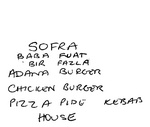 SOFRA
BABA FUAT
BIR FAZLA
ADANA BURGER
CHICKEN BURGER
PIZZA PIDE KEBAB
HOUSE